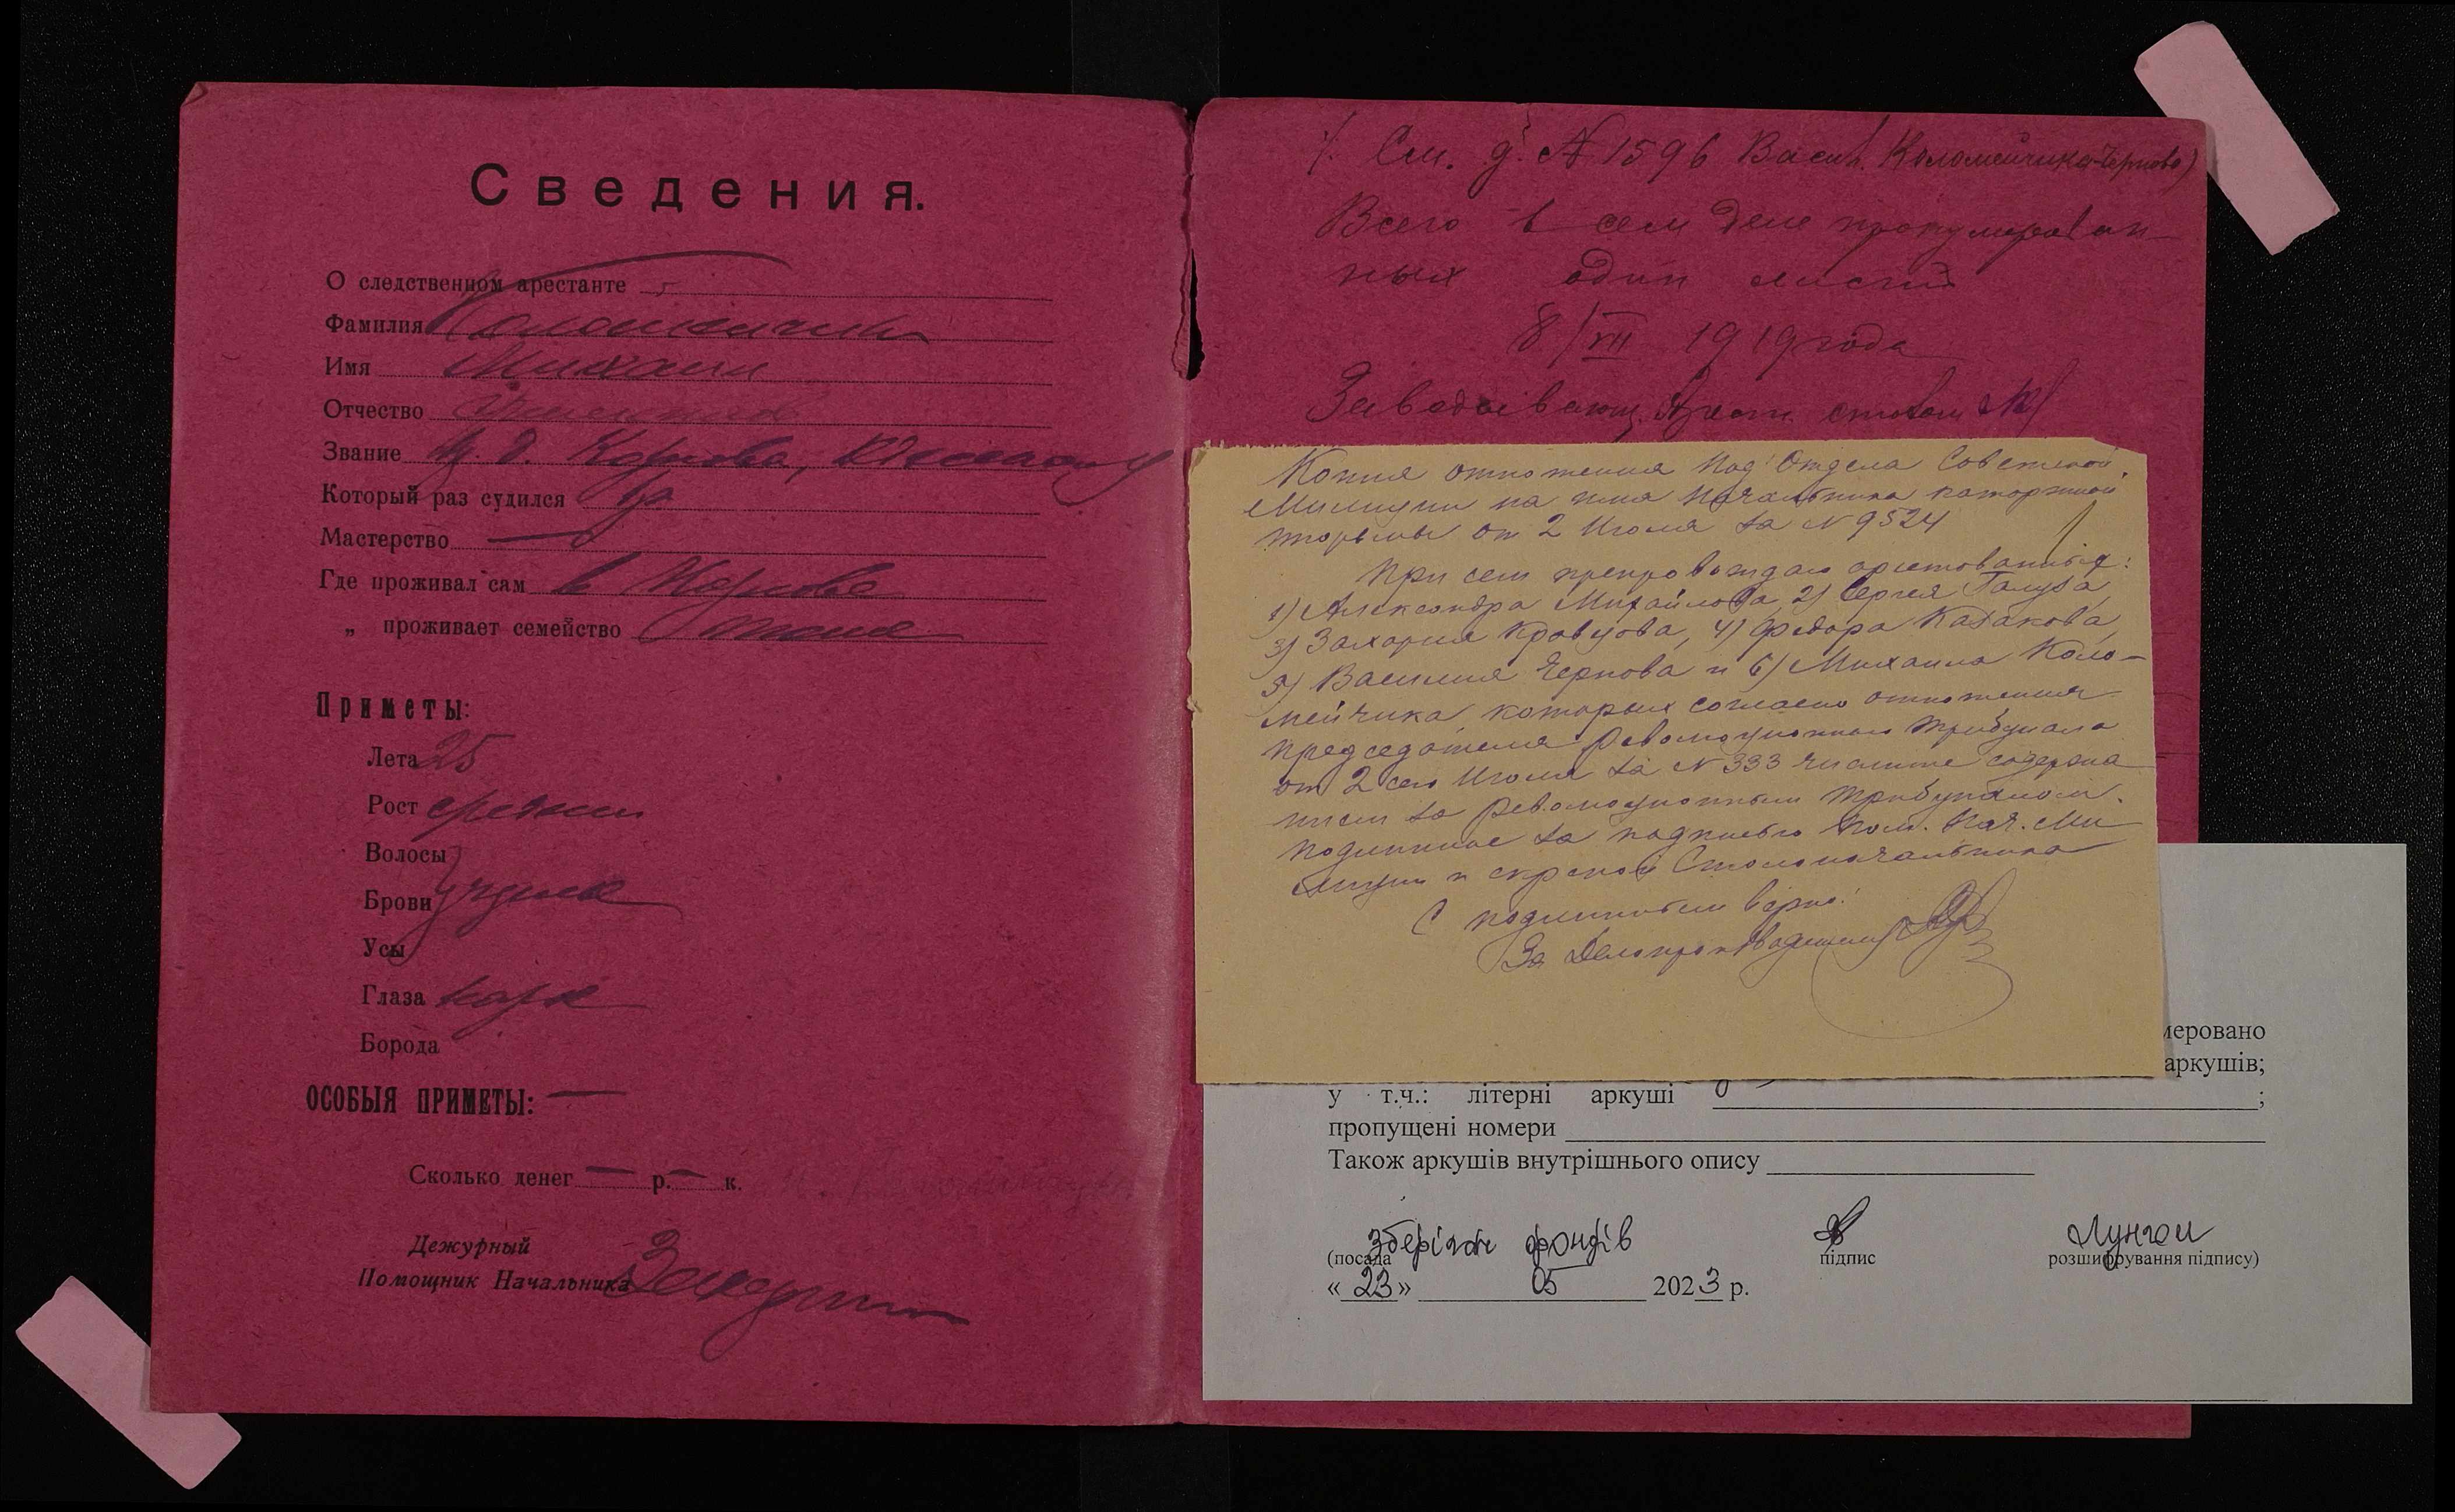 Сведения.
О следственном арестанте
Фамилия Коломейчик
Имя Михаил
Отчество
Звание
Который раз судился
Мастерство —
Где проживал сам в
„ проживает семейство
Приметы:
Лета 25
Рост средний
Волосы
Брови
Усы
Глаза карие
Борода
ОСОБЫЯ ПРИМЕТЫ: —
Сколько денег — р. — к.
Дежурный
Помощник Начальника
См. д. № 1596 Васил. Коломейчика-Чернова)
Всего в сем деле пронумерован-
ных один листов
8/VII 1919 года
Заведывающ. Арест. столом
Копия отношения Под'Отдела Советской
Милиции на имя Начальника каторжной
тюрьмы от 2 Июля за № 9524
При сем препровождаю арестованных:
1) Александра Михайлова, 2) Сергея Галуза,
3) Захария Кравцова, 4) Федора Казакова,
5) Василия Чернова и 6) Михаила Коло-
мейчика, которых согласно отношения
председателя Революционного Трибунала
от 2 сего Июля за № 333 числите содержа-
нием за Революционным Трибуналом.
Подлинное за подписью Пом. Нач. Ми-
лиции и скрепой Столоначальника
С подлинным верно:
За Делопроизводителя
меровано
аркушів;
у т.ч.: літерні аркуші ;
пропущені номери
Також аркушів внутрішнього опису
Зберігач фондів
(посада підпис розшифрування підпису)
« 23 » 05 2023 р.